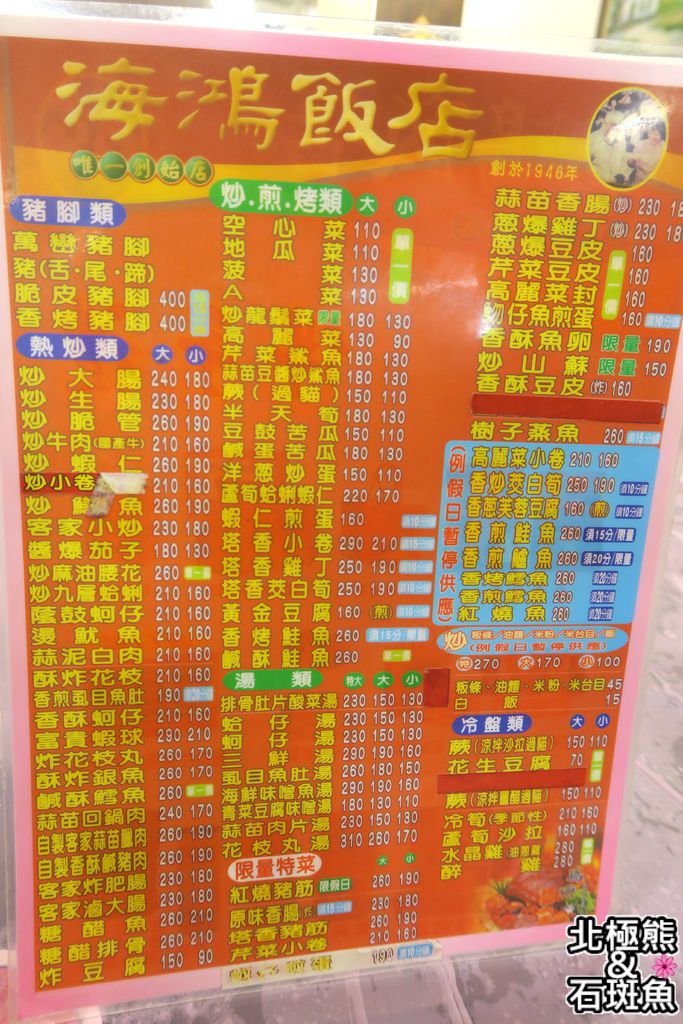 海鴻飯店
唯一創始店
創於1946年
豬腳類
萬巒豬腳
豬(舌·尾·蹄)
脆皮豬腳 400
香烤豬腳 400
熱炒類 大 小
炒大腸 240 180
炒生腸 230 180
炒脆管 260 190
炒牛肉(國產牛) 210 160
炒蝦仁 260 190
炒小卷 210 160
炒魷魚 260 190
客家小炒 230 180
醬爆茄子 180 130
炒麻油腰花 260 單一價
炒九層蛤蜊 210 160
蔭鼓蚵仔 210 160
燙魷魚 210 160
蒜泥白肉 210 160
酥炸花枝 210 160
香煎虱目魚肚 190 須20分鐘
香酥蚵仔 210 160
富貴蝦球 290 210
炸花枝丸 260 170
酥炸銀魚 260 170
鹹酥鱈魚 260 單一價
蒜苗回鍋肉 240 170
自製客家蒜苗臘肉 260 190
自製香酥鹹豬肉 260 190
客家炸肥腸 230 180
客家滷大腸 230 180
糖醋魚 260 210
糖醋排骨 260 210
炸豆腐 150 90
炒.煎.烤類 大 小
空心菜 110
地瓜菜 110
波菜 130
A菜 130
單一價
炒龍鬚菜 限量 180 130
高麗菜 130 90
芹菜鯊魚 180 130
蒜苗豆醬炒鯊魚 180 130
蕨(過貓) 150 110
半天筍 180 130
豆鼓苦瓜 180 130
鹹蛋苦瓜 180 130
洋蔥炒蛋 150 110
蘆筍蛤蜊蝦仁 220 170
蝦仁煎蛋 160 須10分鐘
塔香小卷 290 210 須15分鐘
塔香雞丁 250 190 須10分鐘
塔香茭白筍 250 190 須10分鐘
黃金豆腐 160 (煎) 須10分鐘
香烤鮭魚 260 須15分/限量
鹹酥鮭魚 260 單一價
湯類 特大 大 小
排骨肚片酸菜湯 230 150 130
蛤仔湯 230 150 130
蚵仔湯 230 150 130
三鮮湯 290 190 160
虱目魚肚湯 260 180 150
海鮮味噌魚湯 290 190 160
青菜豆腐味噌湯 230 150 130
蒜苗肉片湯 230 150 130
花枝丸湯 310 260 170
限量特菜 大 小
紅燒豬筋 限假日 260 190
原味香腸(炸) 須15分鐘 230 180
塔香豬筋 210 160
芹菜小卷 210 160
190 須10分鐘
蒜苗香腸(炒) 230 18
蔥爆雞丁(炒) 230 180
蔥爆豆皮 160
芹菜豆皮 160
高麗菜封 160
吻仔魚煎蛋 160 須10分鐘
單一價
香酥魚卵 限量 190
炒山蘇 限量 150
香酥豆皮(炸) 160
樹子蒸魚 260 須15分鐘
(例假日暫停供應)
高麗菜小卷 210 160
香炒茭白筍 250 190 須10分鐘
香蔥芙蓉豆腐 160 (煎) 須10分鐘
香煎鮭魚 260 須15分/限量
香煎鱸魚 260 須20分/限量
香烤鱈魚 260 須20分鐘
香煎鱈魚 260 須20分鐘
紅燒魚 260 須20分鐘
炒 粄條/油麵/米粉/米台目/飯
(例假日暫停供應)
特270 大170 小100
粄條、油麵、米粉、米台目 45
白飯 15
冷盤類 大 小
蕨(涼拌沙拉過貓) 150 110
花生豆腐 70
蕨(涼拌醋過貓) 150 110
冷筍(季節性) 210 160
蘆筍沙拉 160 110
水晶雞(油蔥雞) 280
醉雞 280
北極熊
&
石斑魚